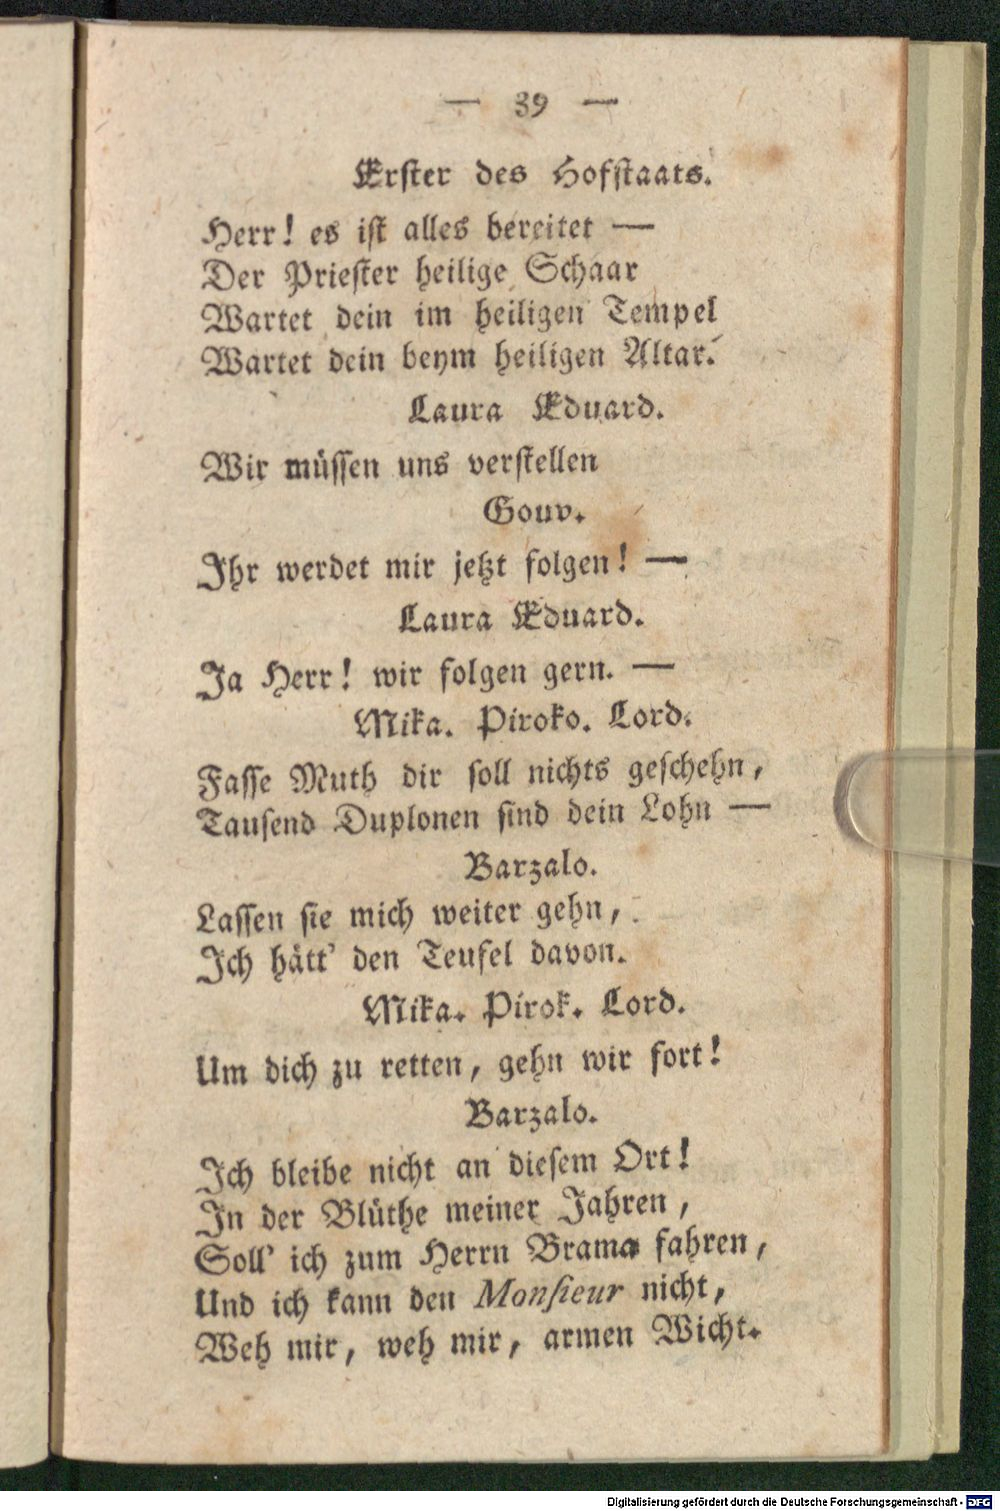 — 39 —
Erster des Hofstaats.
Herr! es ist alles bereitet —
Der Priester heilige Schaar
Wartet dein im heiligen Tempel
Wartet dein beym heiligen Altar.
Laura Eduard.
Wir müssen uns verstellen
Gouv.
Ihr werdet mir jetzt folgen! —
Laura Eduard.
Ja Herr! wir folgen gern. —
Mika. Piroko. Lord.
Fasse Muth dir soll nichts geschehn,
Tausend Duplonen sind dein Lohn —
Barzalo.
Lassen sie mich weiter gehn,
Ich hätt' den Teufel davon.
Mika. Pirok. Lord.
Um dich zu retten, gehn wir fort!
Barzalo.
Ich bleibe nicht an diesem Ort!
In der Blüthe meiner Jahren,
Soll' ich zum Herrn Brama fahren,
Und ich kann den Monsieur nicht,
Weh mir, weh mir, armen Wicht.
Digitalisierung gefördert durch die Deutsche Forschungsgemeinschaft - DFG